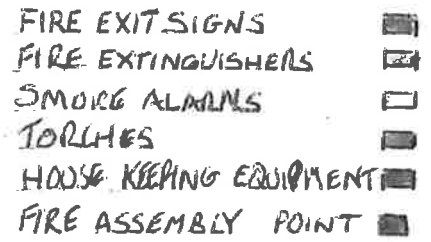 FIRE EXIT SIGNS
FIRE EXTINGUISHERS
SMOKE ALARMS
TORCHES
HOUSE KEEPING EQUIPMENT
FIRE ASSEMBLY POINT